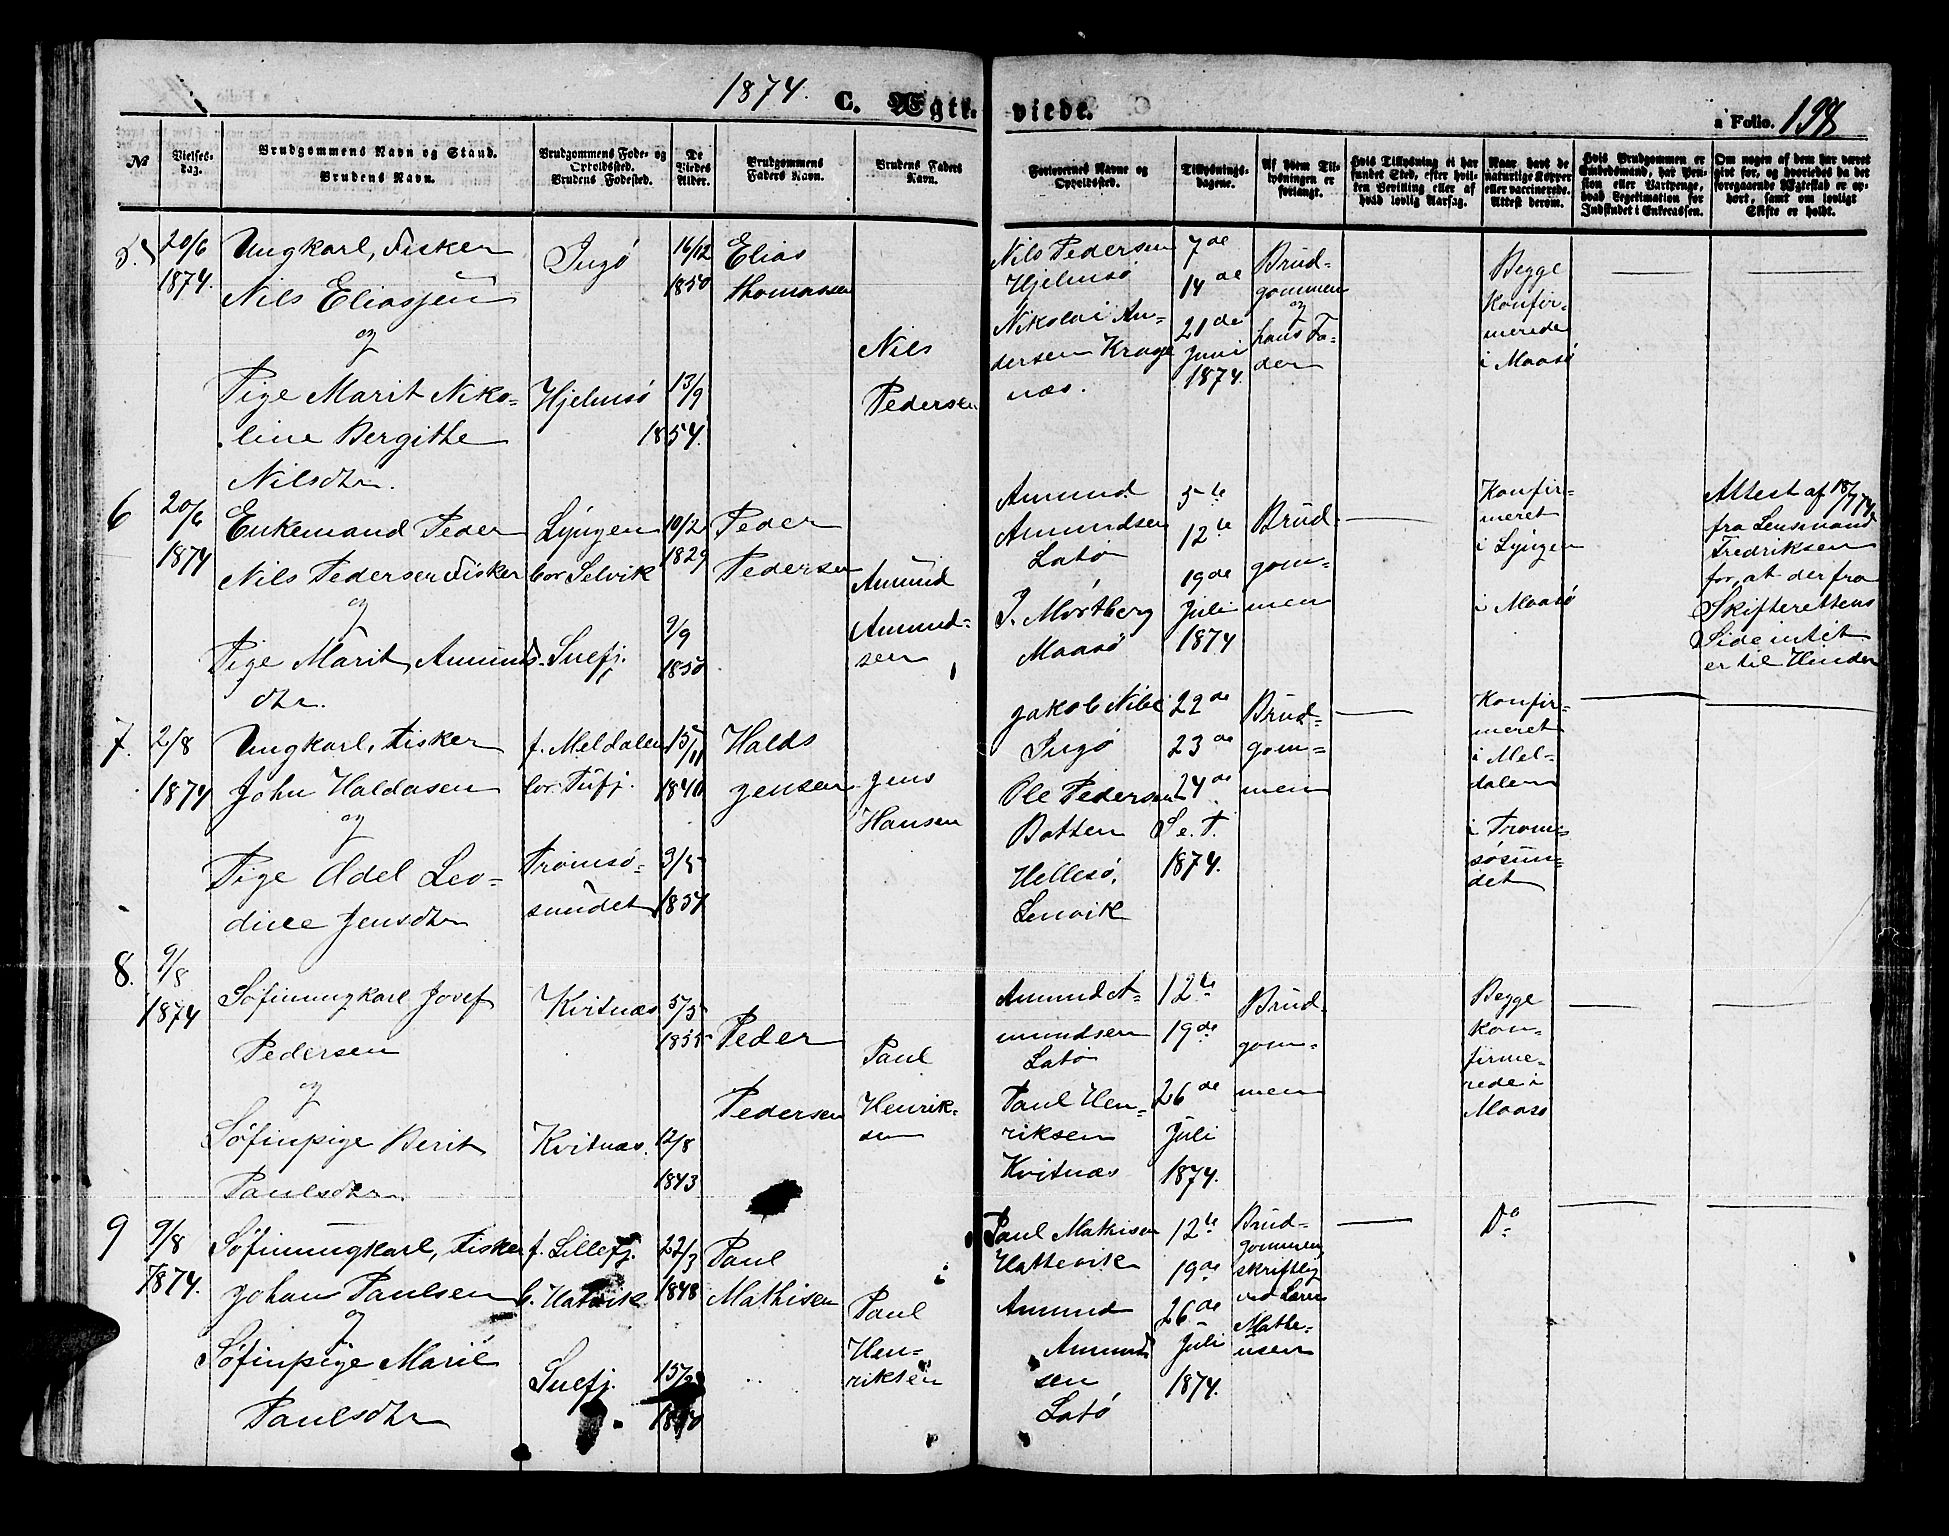 1874. C. Ægte-viede.
a Folio. 198
№
Vielses-dag.
Brudgommens Navn og Stand.
Brudens Navn.
Brudgommens Føde- og
Opholdssted.
Brudens Fødested.
De
Viedes
Alder.
Brudgommens
Faders Navn.
Brudens Faders
Navn.
Forlovernes Navne og
Opholdssted.
Tillysnings-
dagene.
Af hvem Til-
lysningen er
forlangt.
Hvis Tillysning ei har
fundet Sted, efter hvil-
ken Bevilling eller af
hvad lovlig Aarsag.
Naar havt de
naturlige Kopper
eller vaccinerede.
Attest derom.
Hvis Brudgommen er
Embedsmand, har Pen-
sion eller Vartpenge,
hvad Legitimation for
Indskudet i Enkecassen.
Om nogen af dem har været
givt før, og hvorledes da det
foregaaende Ægteskab er op-
hørt, samt om lovligt
Skifte er holdt.
5.
20/6
1874.
Ungkarl, Fisker
Nils Eliassen
og
Pige Marit Niko-
line Bergithe
Nilsdtr.
Ingø
Hjelmsø
16/12
1850
13/9
1854.
Elias
Thomassen
Nils
Pedersen
Nils Pedersen
Hjelmsø
Nikolai An-
dersen Krage
næs.
7de
14de
21de
Juni
1874.
Brud-
gommen
og
hans Fa-
der
Begge
Konfir-
merede
i Maasø
6
20/6
1874
Enkemand Peder
Nils Pedersen Fisker
og
Pige Marit Amunds-
dtr.
Lyngen
bor Selvik
Snefj.
10/2
1829
9/9
1850
Peder
Pedersen
Amund
Amund-
sen
Amund
Amundsen
Latø
J. Mortberg
Maasø
5te
12te
19de
Juli
1874
Brud-
gom-
men
Konfir-
meret
i Lyngen
i Maasø
Attest af 18/7 74
fra Lensmand
Fredriksen
for, at der fra
Skifterettens
Side intet
er til Hinder
7.
2/8
1874
Ungkarl, Fisker
John Haldasen
og
Pige Adel Leo-
dine Jensdtr
f. Meldalen
bor Tufj.
Tromsø-
sundet
15/11
1840
3/5
1854
Halds
Jensen
Jens
Hansen
Jakob Nibe
Ingø
Ole Pedersen
Botten
Hellesø,
Lenvik
22de
23de
24de
S. e. T.
1874.
Brud-
gom-
men
Konfir-
meret
i Mel-
dalen
i Trom-
søsun-
det
8.
9/8
1874
Søfinungkarl Josef
Pedersen
og
Søfinpige Berit
Paulsdtr.
Kvitnæs
Kvitnæs.
5/5
1855
12/8
1843
Peder
Pedersen
Paul
Henrik-
sen
Amund A-
mundsen
Latø
Paul Hen-
riksen
Kvitnæs
12te
19de
26de
Juli
1874.
Brud-
gom-
men
Begge
kon-
firme-
rede i
Maasø
9
9/8
1874.
Søfinungkarl, Fisker
Johan Paulsen
og
Søfinpige Marie
Paulsdtr
f. Lillefj.
b. Hatvik
Snefj.
22/3
1848
Paul
Mathisen
Paul
Hen-
riksen
Paul Mathisen
Hattevik
Amund
Amund-
sen
Latø
12te
19de
26de
Juli
1874.
Brud-
gommen
skriftlig
ved Lærer
Mathe-
usen
Do